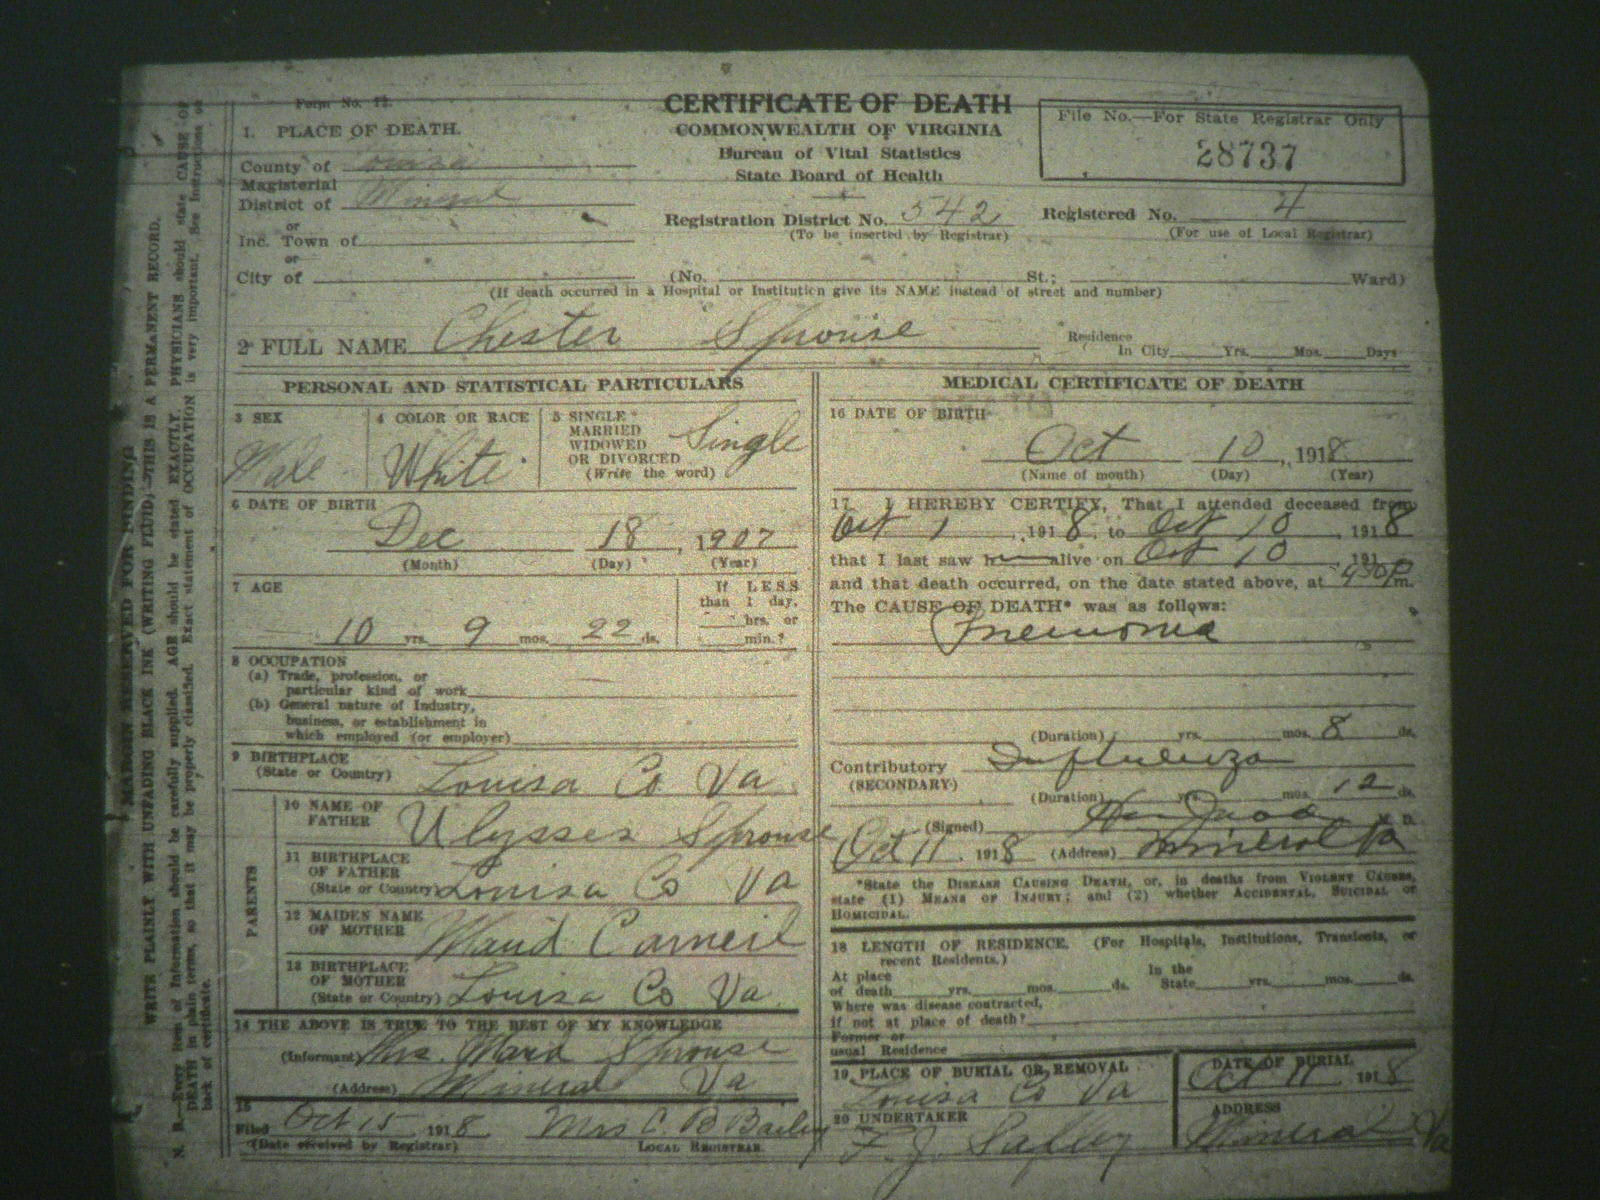 Form No. 12.
CERTIFICATE OF DEATH
COMMONWEALTH OF VIRGINIA
Bureau of Vital Statistics
State Board of Health
File No.—For State Registrar Only
28737
1. PLACE OF DEATH.
County of Louisa
Magisterial
District of Mineral
or
Inc. Town of
or
City of
Registration District No. 542
(To be inserted by Registrar)
Registered No. 4
(For use of Local Registrar)
(No. St.; Ward)
(If death occurred in a Hospital or Institution give its NAME instead of street and number)
2 FULL NAME Chester Sprouse
Residence
In City Yrs. Mos. Days
PERSONAL AND STATISTICAL PARTICULARS
3 SEX
Male
4 COLOR OR RACE
White
5 SINGLE
MARRIED
WIDOWED
OR DIVORCED
(Write the word)
Single
6 DATE OF BIRTH
Dec 18, 1907
(Month) (Day) (Year)
7 AGE
10 yrs. 9 mos. 22 ds.
If LESS
than 1 day,
hrs. or
min.?
8 OCCUPATION
(a) Trade, profession, or
particular kind of work
(b) General nature of Industry,
business, or establishment in
which employed (or employer)
9 BIRTHPLACE
(State or Country)
Louisa Co Va
PARENTS
10 NAME OF
FATHER
Ulysses Sprouse
11 BIRTHPLACE
OF FATHER
(State or Country)
Louisa Co Va
12 MAIDEN NAME
OF MOTHER
Maud Carneil
13 BIRTHPLACE
OF MOTHER
(State or Country)
Louisa Co Va
14 THE ABOVE IS TRUE TO THE BEST OF MY KNOWLEDGE
(Informant) Mrs. Maud Sprouse
(Address) Mineral Va
15
Filed Oct 15 1918 Mrs C B Bailey
(Date received by Registrar) LOCAL REGISTRAR.
MEDICAL CERTIFICATE OF DEATH
16 DATE OF BIRTH DEATH
Oct 10, 1918
(Name of month) (Day) (Year)
17 I HEREBY CERTIFY, That I attended deceased from
Oct 1, 1918, to Oct 10, 1918
that I last saw h alive on Oct 10, 191
and that death occurred, on the date stated above, at 430 P m.
The CAUSE OF DEATH* was as follows:
Pnemonia
(Duration) yrs. mos. 8 ds.
Contributory Influenza
(SECONDARY)
(Duration) yrs. mos. 12 ds.
(Signed) M. D.
Oct 11, 1918 (Address) Mineral Va
*State the DISEASE CAUSING DEATH, or, in deaths from VIOLENT CAUSES,
state (1) MEANS OF INJURY; and (2) whether ACCIDENTAL, SUICIDAL or
HOMICIDAL.
18 LENGTH OF RESIDENCE. (For Hospitals, Institutions, Transients, or
recent Residents.)
At place
of death yrs. mos. ds.
In the
State yrs. mos. ds.
Where was disease contracted,
if not at place of death?
Former or
usual Residence
19 PLACE OF BURIAL OR REMOVAL
Louisa Co Va
DATE OF BURIAL
Oct 11 1918
20 UNDERTAKER
F. J.
ADDRESS
Mineral Va
MARGIN RESERVED FOR BINDING
WRITE PLAINLY WITH UNFADING BLACK INK (WRITING FLUID)—THIS IS A PERMANENT RECORD.
N. B.—Every item of information should be carefully supplied. AGE should be stated EXACTLY. PHYSICIANS should state CAUSE OF
DEATH in plain terms, so that it may be properly classified. Exact statement of OCCUPATION is very important. See Instructions on
back of certificate.